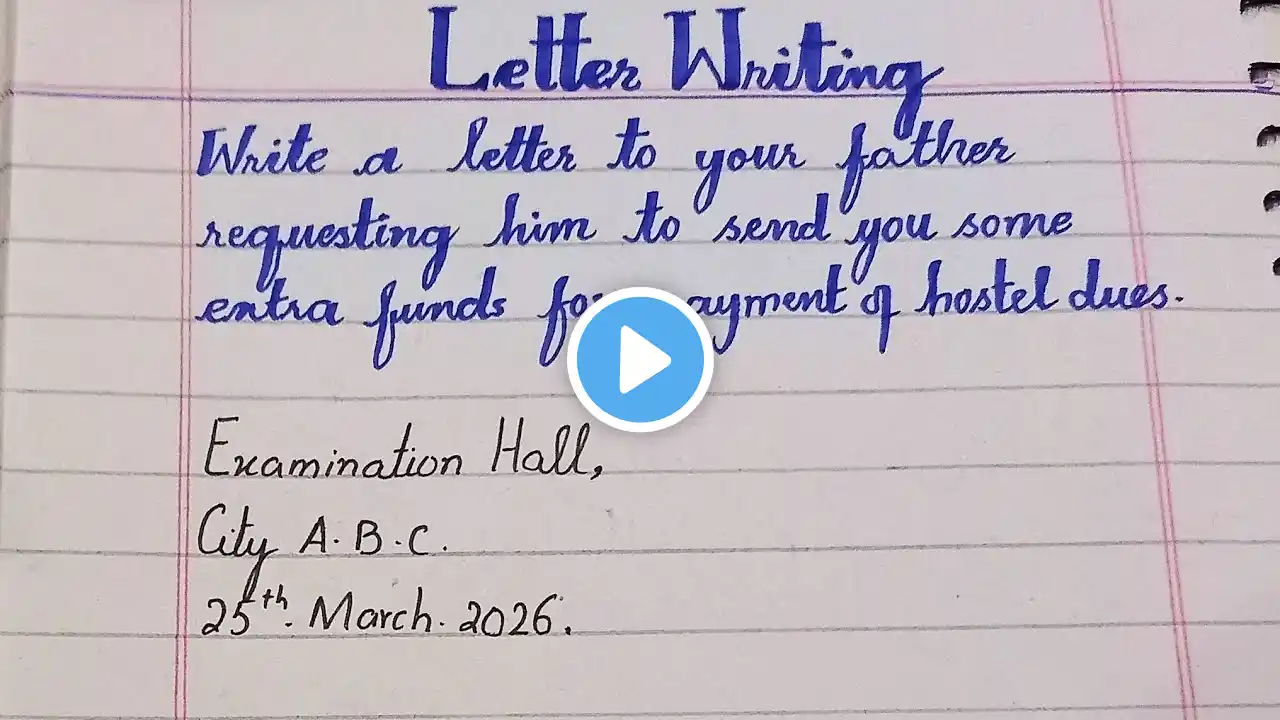 Letter Writing
Write a letter to your father
requesting him to send you some
extra funds for payment of hostel dues.
Examination Hall,
City A.B.C.
25th. March. 2026.